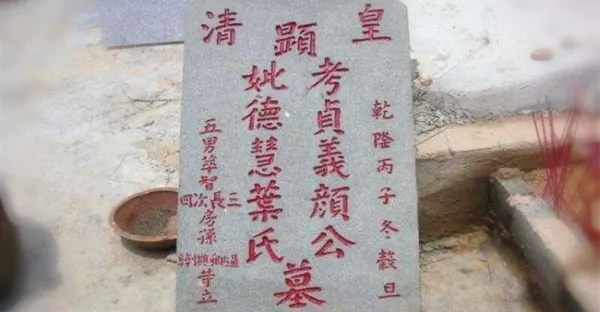 皇清
顯
乾隆丙子冬穀旦
考貞義顏公
妣德慧葉氏
墓
五男智
三長次四
房孫
等立